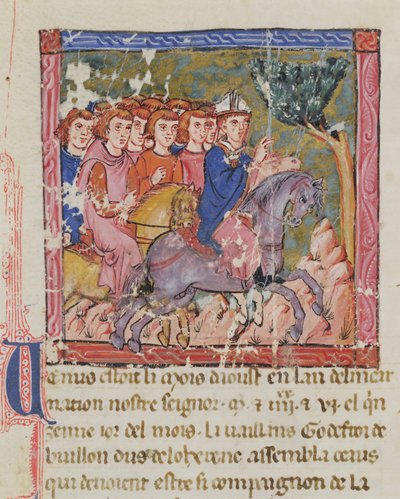 Uenus estoit li mois daoust en lan delincar
nation nostre seignor . m . & iiii xx & vi . el qin
zenne ior del mois . Li vaillins Godefroi de
buillon dus de loherene assembla ceaus
qui devoient estre si compaignon de la